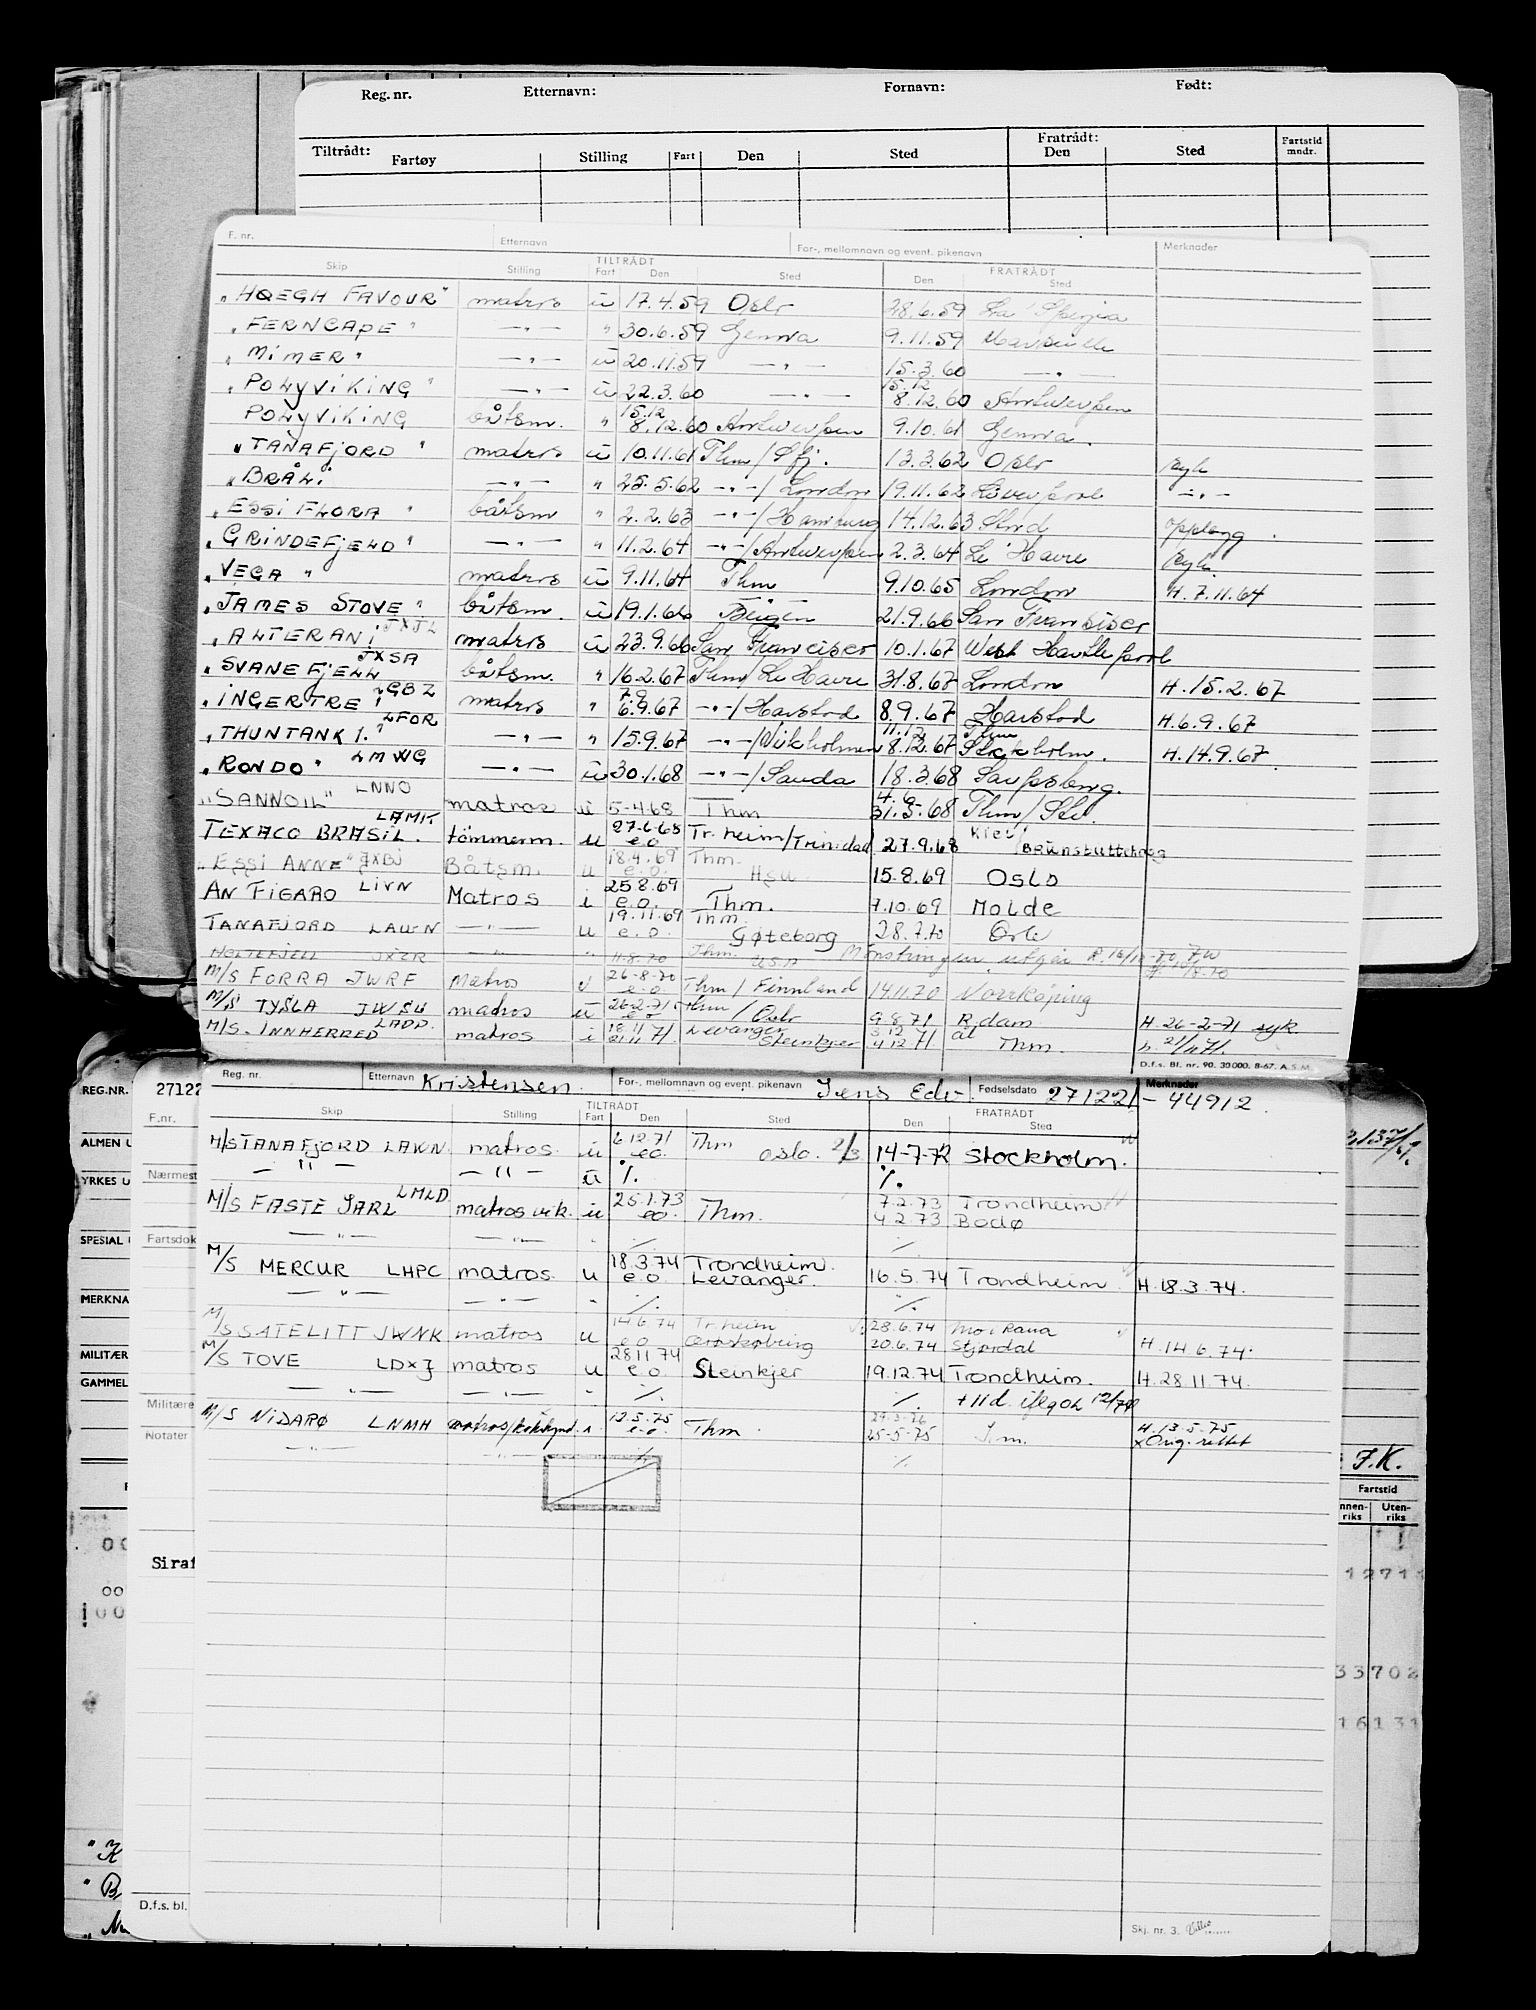 Reg. nr. Etternavn: Fornavn: Født:
Tiltrådt: Fratrådt: Fartstid mndr.
Fartøy Stilling Fart Den Sted Den Sted
F. nr. Etternavn For-, mellomnavn og event. pikenavn Merknader
TILTRÅDT FRATRÅDT
Skip Stilling Fart Den Sted Den Sted
"HØEGH FAVOUR" matros u 17.4.59 Oslo 28.6.59 La Spezia
"FERNCAPE" —"— " 30.6.59 Genova 9.11.59 Marseille
"MIMER" —"— u 20.11.59 —"— 15.3.60 —"—
"POLYVIKING" —"— u 22.3.60 —"— 15.12 8.12.60 Antwerpen
POLYVIKING båtsm. " 15.12 8.12.60 Antwerpen 9.10.61 Genova.
"TANAFJORD" matros u 10.11.61 Thm/Sfj. 13.3.62 Oslo syk
"BRÅLI" —"— " 25.5.62 —"—/London 19.11.62 Liverpool —"—
"ESSI FLORA" båtsm " 2.2.63 —"—/Hamburg 14.12.63 Stord oppsang.
"GRINDEFJELD" —"— " 11.2.64 —"—/Antwerpen 2.3.64 Le Havre syk
"VEGA" matros u 9.11.64 Thm 9.10.65 London H. 7.11.64
"JAMES STOVE" JXJL båtsm. u 19.1.66 Bergen 21.9.66 San Fransisco
"ALTERANI" JXSA matros u 23.9.66 San Francisco 10.1.67 West Hartlepool
"SVANEFJELL" LGBZ båtsm. " 16.2.67 Thm/Le Havre 31.8.67 London H. 15.2.67
"INGERTRE" LFOR matros " 7.9 6.9.67 —"—/Harstad 8.9.67 Harstad H. 6.9.67
"THUNTANK 1." LMWG —"— " 15.9.67 —"—/Wikholmen 11.12 8.12.67 Thm Stockholm. H. 14.9.67.
"RONDO" —"— u 30.1.68 —"—/Sauda 18.3.68 Sarpsborg.
"SANNOIL" LNNO matros u 5-4.68 Thm 4.6- 31.5-68 Thm/Slv.
TEXACO BRASIL. LAMK tömmerm. u 27-6-68 e.o Tr.heim/Trinidad 27.9.68 Kiel/Brunsbuttelkoog
"ESSI ANNE" JXBJ Båtsm. u 18.4.69 e.o. Thm. HSU 15.8.69 Oslo
AN FIGARO LIVN Matros i 25.8.69 e.o. Thm. 7.10.69 Molde
TANAFJORD LAWN —"— u 19.11.69 e.o. Thm. Gøteborg 28.7.70 Oslo
HOLTEFJELL JXZR —"— " 11-8-70 Thm. USA Mønstringen utgår R. 16/10-70
M/S FORRA JWRF Matros u 26-8-70 e.o Thm/Finnland 14.11.70 Norrköping
M/S TYSLA JWSU matros u 26-2-71 e.o Thm/Oslo 9.8.71 R.dam H. 26-2-71 syk
M/S. INNHERRED LADD. matros i 18.11 21.11 71. Levanger Steinkjer 3.12 4.12 71 Thm. h. 21/11 71.
D.f.s. Bl. nr. 90. 30 000. 8-67. A.S.M.
REG.NR. 27122
Reg. nr. Etternavn Kristensen. For-, mellomnavn og event. pikenavn Jens Edv. Fødselsdato 271221 Merknader - 44912.
F.nr.
TILTRÅDT FRATRÅDT
Skip Stilling Fart Den Sted Den Sted
ALMEN U
M/S TANAFJORD LAWN. matros. u 6.12.71 eo. Thm oslo. 2/3 14-7-72 Stockholm.
— " — —"— u ./. ./.
Nærmest
YRKES U
M/S FASTE JARL LMLD matros vik. u 25.1.73 eo. Thm. 7.2.73 Trondheim 4.2.73 Bodø
SPESIAL U Fartsdok
—"— —"— " ./. ./.
M/S MERCUR LHPC matros. u 18.3.74 e.o. Trondheim. Levanger. 16.5.74 Trondheim H. 18.3.74.
MERKNA
—"— —"— " ./. ./.
M/S SATELITT JWNK matros u 14.6.74 e.o Tr.heim Ærøskøbing 28.6.74 Mo i Rana 20.6.74 Stjørdal H. 14.6.74.
MILITÆR
M/S TOVE LDXJ matros u 28.11 74 e.o Steinkjer 19.12.74 Trondheim. H. 28.11.74.
GAMMEL
—"— —"— " ./. ./. +11d. iflg 12/74
Militære
M/S NIDARØ LNMH matros/ i 13.5.75 e.o. Thm. 25-5-75 H. 13-5-75 x Orig. rettet
Notater
—"— " ./. ./.
F.K.
Fartstid
nnen-riks Uten-riks
Siraf
1271
33702
16131
"K
"B
D.f.s. bl.
Skj. nr. 3.